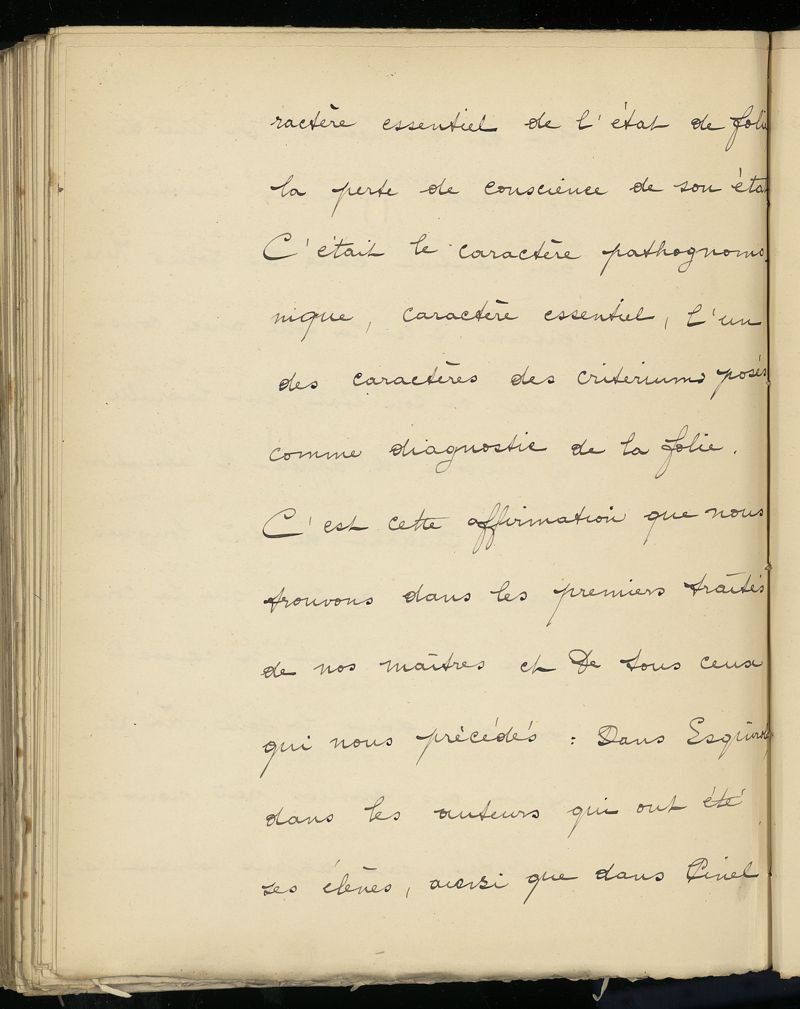 ractère essentiel de l'état de folie
la perte de conscience de son état
C'était le caractère pathognomo
nique, caractère essentiel, l'un
des caractères des criteriums posés
comme diagnostic de la folie.
C'est cette affirmation que nous
trouvons dans les premiers traités
de nos maîtres et De tous ceux
qui nous précédés : Dans Esquirol,
dans les auteurs qui ont été
ses élèves, ainsi que dans Pinel